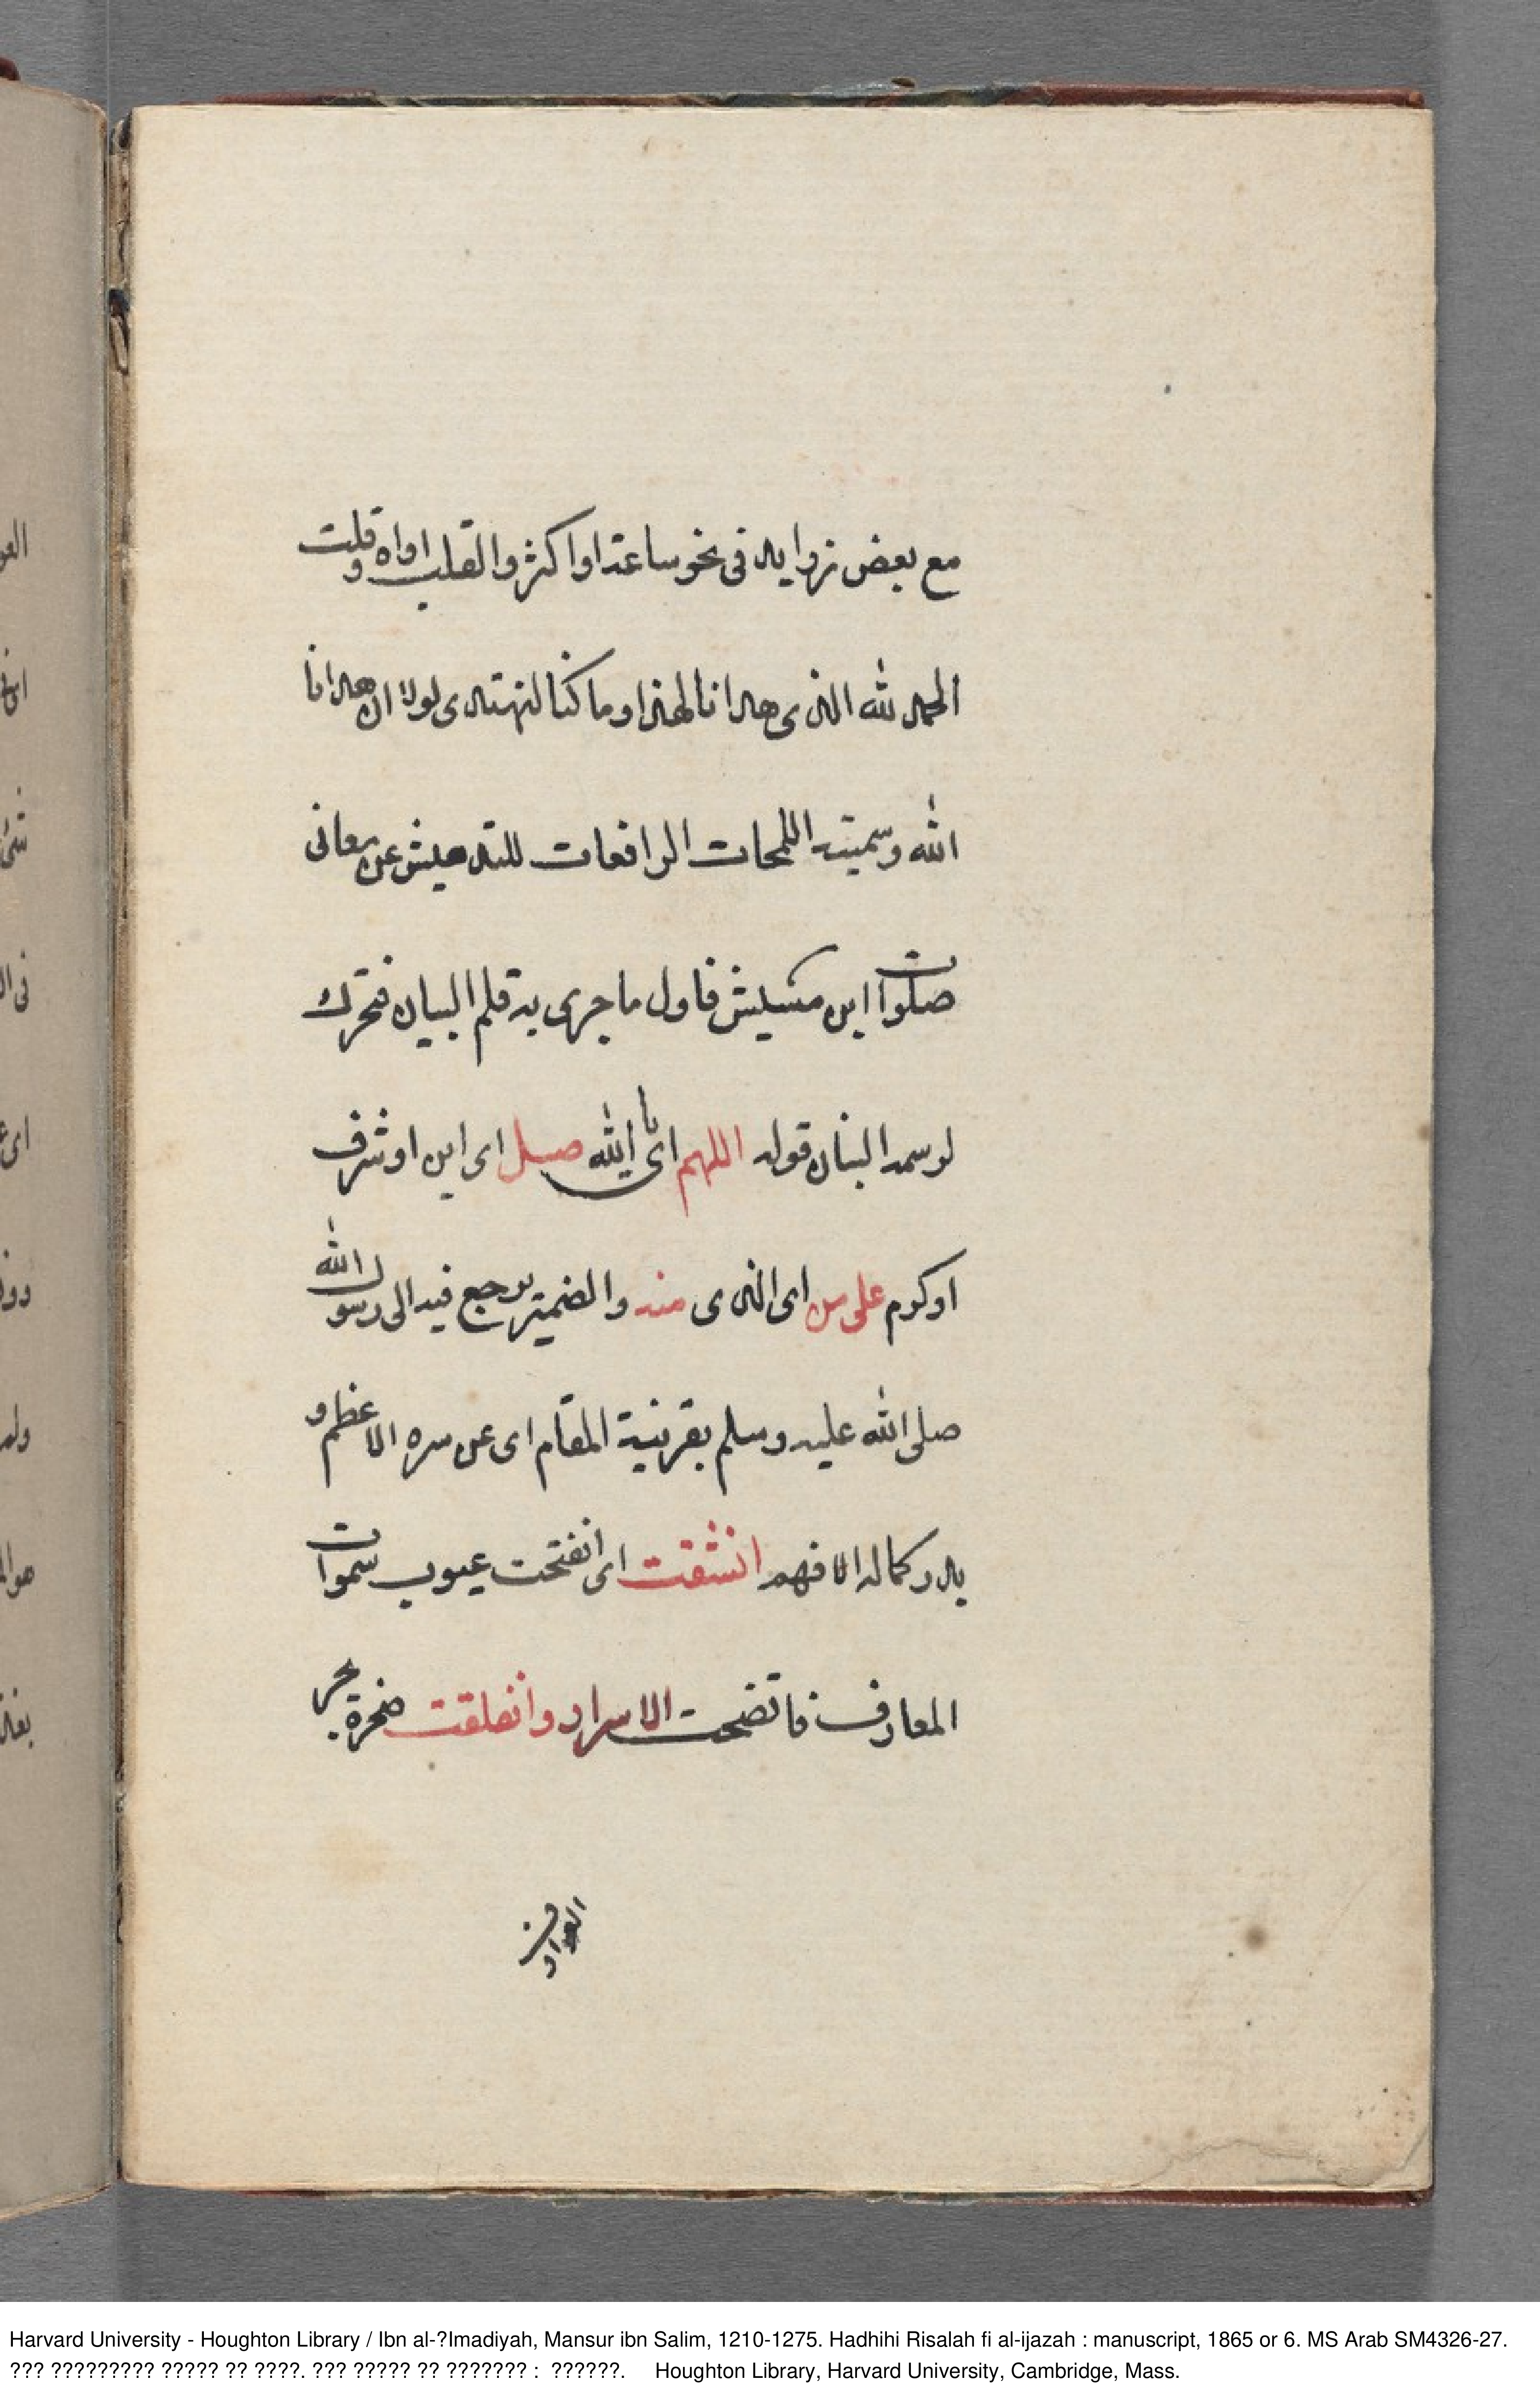 مع بعض زوايد فى نحو ساعة او اكثر والقلب اواه وقلت
الحمد لله الذى هدانا لهذا وما كنا لنهتدى لولا ان هدانا
الله وسميته اللمحات الرافعات للتدهيش عن معانى
صلوات ابن مشيش فاول ما جرى به قلم البيان فتحرك
لوسمه البنان قوله اللهم اى يا الله صل اى اين او شرف
او كوم على من اى الذى منه والضمير يرجع فيه الى رسول الله
صلى الله عليه وسلم بقرنية المقام اى عن سره الاعظم و
بدر كماله الافهم انشقت اى انفتحت عيوب سموات
المعارف فاتضحت الاسرار وانفلقت صخرة بحر
العوارف
العو
نى ال
اى
وله
هو ال
Harvard University - Houghton Library / Ibn al-?Imadiyah, Mansur ibn Salim, 1210-1275. Hadhihi Risalah fi al-ijazah : manuscript, 1865 or 6. MS Arab SM4326-27.
??? ????????? ????? ?? ????. ??? ????? ?? ??????? : ??????. Houghton Library, Harvard University, Cambridge, Mass.